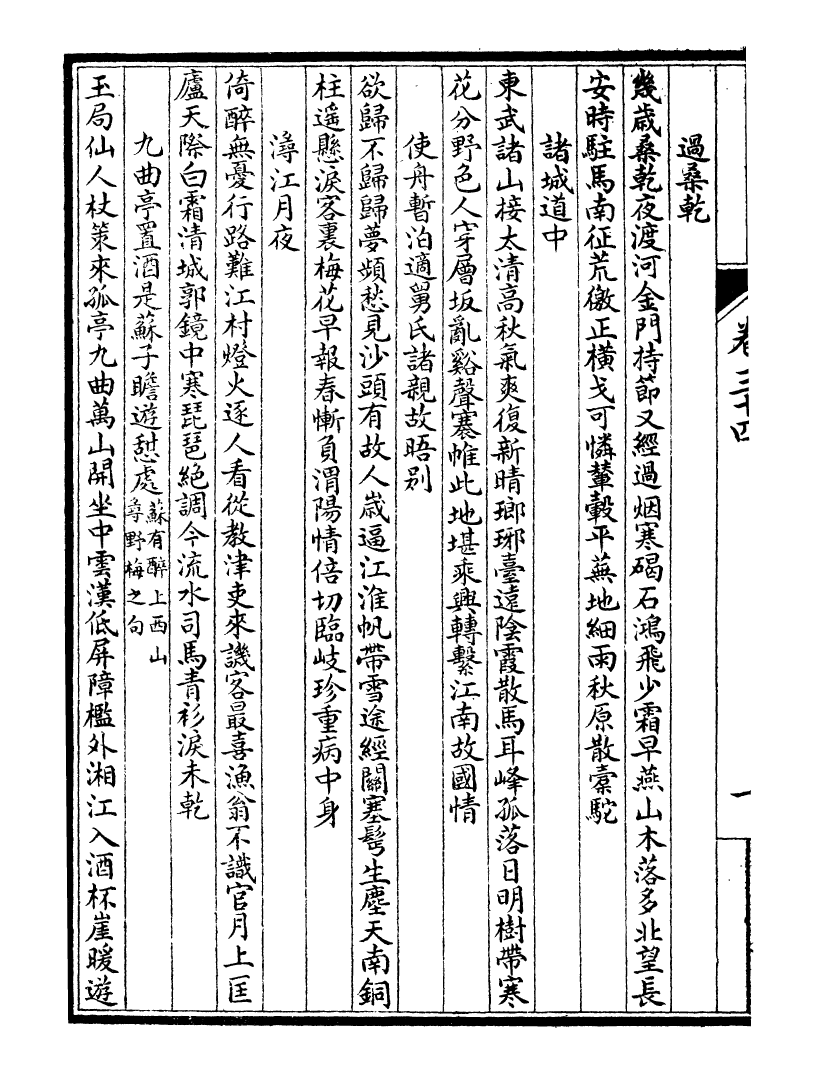 卷三十四
一
過桑乾
幾歲桑乾夜渡河金門持節又經過烟寒碣石鴻飛少霜早燕山木落多北望長
安時駐馬南征荒徼正橫戈可憐輦轂平蕪地細雨秋原散橐駝
諸城道中
東武諸山接太清高秋氣爽復新晴瑯琊臺遠陰霞散馬耳峰孤落日明樹帶寒
花分野色人穿層坂亂谿聲褰帷此地堪乘興轉繫江南故國情
使舟暫泊適舅氏諸親故晤别
欲歸不歸歸夢頻愁見沙頭有故人嵗逼江淮帆帶雪途經關塞髩生塵天南銅
柱遥懸淚客裏梅花早報春慚負渭陽情倍切臨岐珍重病中身
潯江月夜
倚醉無憂行路難江村燈火逐人看從教津吏來譏客最喜漁翁不識官月上匡
廬天際白霜清城郭鏡中寒琵琶絶調今流水司馬青衫淚未乾
九曲亭置酒是蘇子瞻遊憇處蘇有醉上西山
尋野梅之句
玉局仙人杖策來孤亭九曲萬山開坐中雲漢低屏障檻外湘江入酒杯崖暖遊